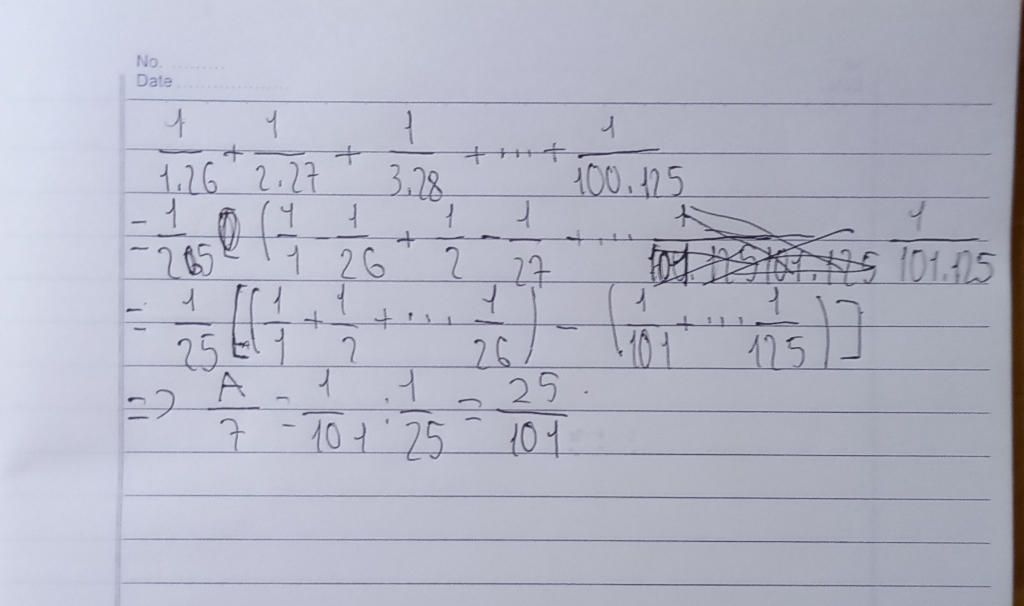 No. ........
Date ..................
1/1.26 + 1/2.27 + 1/3.28 + ... + 1/100.125
= 1/25 (1/1 - 1/26 + 1/2 - 1/27 + ... 1/101.125
= 1/25 [(1/1 + 1/2 + ... 1/26) - (1/101 + ... 1/125)]
=> A/7 = 1/101 : 1/25 = 25/101.